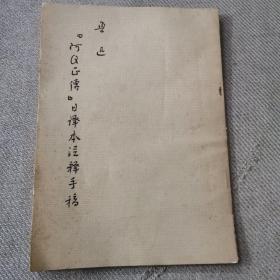 鲁迅
《阿Q正传》日译本注释手稿